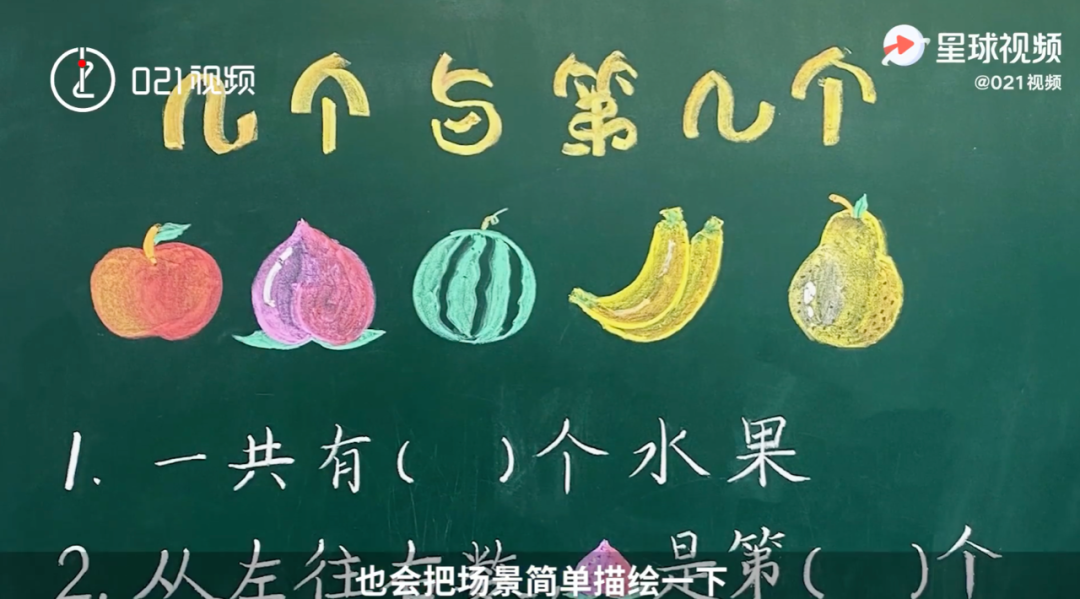 021视频
星球视频
@021视频
几个与第几个
1. 一共有( )个水果
2. 从左往右数 是第( )个
也会把场景简单描绘一下